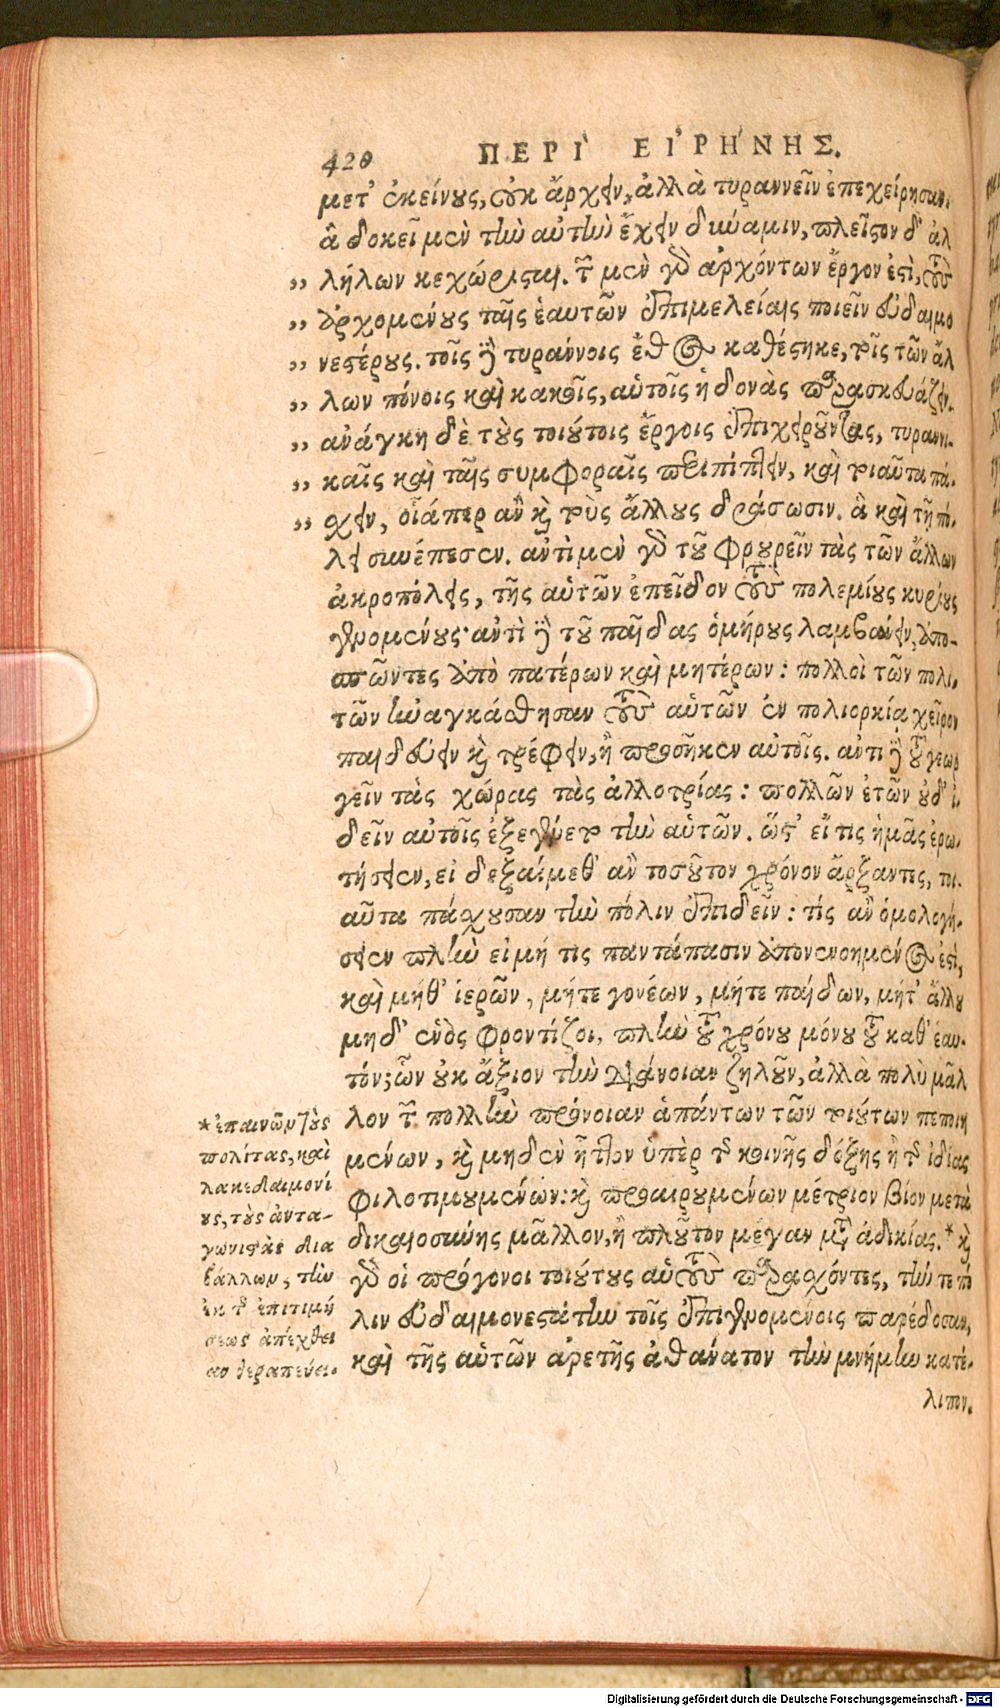 420 ΠΕΡΙ ΕΙΡΗΝΗΣ.
μετ' ἐκείνους, οὐκ ἄρχειν, ἀλλὰ τυραννεῖν ἐπεχείρησαν·
ἃ δοκεῖ μὲν τὴν αὐτὴν ἔχειν δύναμιν, πλεῖστον δ' ἀλ
„ λήλων κεχώρισται. τῶν μὲν γὰρ ἀρχόντων ἔργον ἐστὶ, τοὺς
„ ἀρχομένους ταῖς ἑαυτῶν ἐπιμελείαις ποιεῖν εὐδαιμο
„ νεστέρους. τοῖς δὲ τυράννοις ἔθος καθέστηκε, τοῖς τῶν ἄλ
„ λων πόνοις καὶ κακοῖς, αὑτοῖς ἡδονὰς παρασκευάζειν.
„ ἀνάγκη δὲ τοὺς τοιούτοις ἔργοις ἐπιχειροῦντας, τυραννι-
„ καῖς καὶ ταῖς συμφοραῖς περιπίπτειν, καὶ τοιαῦτα πά-
„ σχειν, οἷάπερ ἂν καὶ τοὺς ἄλλους δράσωσιν. ἃ καὶ τῇ πό-
λει συνέπεσεν. ἀντὶ μὲν γὰρ τοῦ φρουρεῖν τὰς τῶν ἄλλων
ἀκροπόλεις, τῆς αὑτῶν ἐπεῖδον τοὺς πολεμίους κυρίους
γενομένους· ἀντὶ δὲ τοῦ παῖδας ὁμήρους λαμβάνειν, ἀπο-
σπῶντες ἀπὸ πατέρων καὶ μητέρων: πολλοὶ τῶν πολι-
τῶν ἠναγκάσθησαν τοὺς αὑτῶν ἐν πολιορκίᾳ χεῖρον
παιδεύειν καὶ τρέφειν, ἢ προσῆκεν αὐτοῖς. ἀντὶ δὲ τοῦ γεωρ
γεῖν τὰς χώρας τὰς ἀλλοτρίας: πολλῶν ἐτῶν οὐδ' ἰ-
δεῖν αὐτοῖς ἐξεγένετο τὴν αὑτῶν. ὥστ' εἴ τις ἡμᾶς ἐρω-
τήσειεν, εἰ δεξαίμεθ' ἂν τοσοῦτον χρόνον ἄρξαντες, τοι-
αῦτα πάσχουσαν τὴν πόλιν ἐπιδεῖν: τίς ἂν ὁμολογή-
σειεν πλὴν εἰ μή τις παντάπασιν ἀπονενοημένος ἐστὶ,
καὶ μήθ' ἱερῶν, μήτε γονέων, μήτε παίδων, μήτ' ἄλλου
μηδ' ἑνὸς φροντίζοι, πλὴν τοῦ χρόνου μόνου τοῦ καθ' ἑαυ-
τόν; ὧν οὐκ ἄξιον τὴν διάνοιαν ζηλοῦν, ἀλλὰ πολὺ μᾶλ
λον τῶν πολλὴν πρόνοιαν ἁπάντων τῶν τοιούτων πεποιη
μένων, καὶ μηδὲν ἧττον ὑπὲρ τῆς κοινῆς δόξης ἢ τῆς ἰδίας
φιλοτιμουμένων: καὶ προαιρουμένων μέτριον βίον μετὰ
δικαιοσύνης μᾶλλον, ἢ πλοῦτον μέγαν μετὰ ἀδικίας. * καὶ
γὰρ οἱ πρόγονοι τοιούτους αὑτοὺς παρασχόντες, τήν τε πό
λιν εὐδαιμονεστάτην τοῖς ἐπιγενομένοις παρέδοσαν,
καὶ τῆς αὑτῶν ἀρετῆς ἀθάνατον τὴν μνήμην κατέ-
λιπον.
* ἐπαινῶν τοὺς
πολίτας, καὶ
λακεδαιμονί
ους, τοὺς ἀντα-
γωνιστὰς δια
βάλλων, τὴν
ἐκ τῆς ἐπιτιμή
σεως ἀπέχθει
αν θεραπεύει.